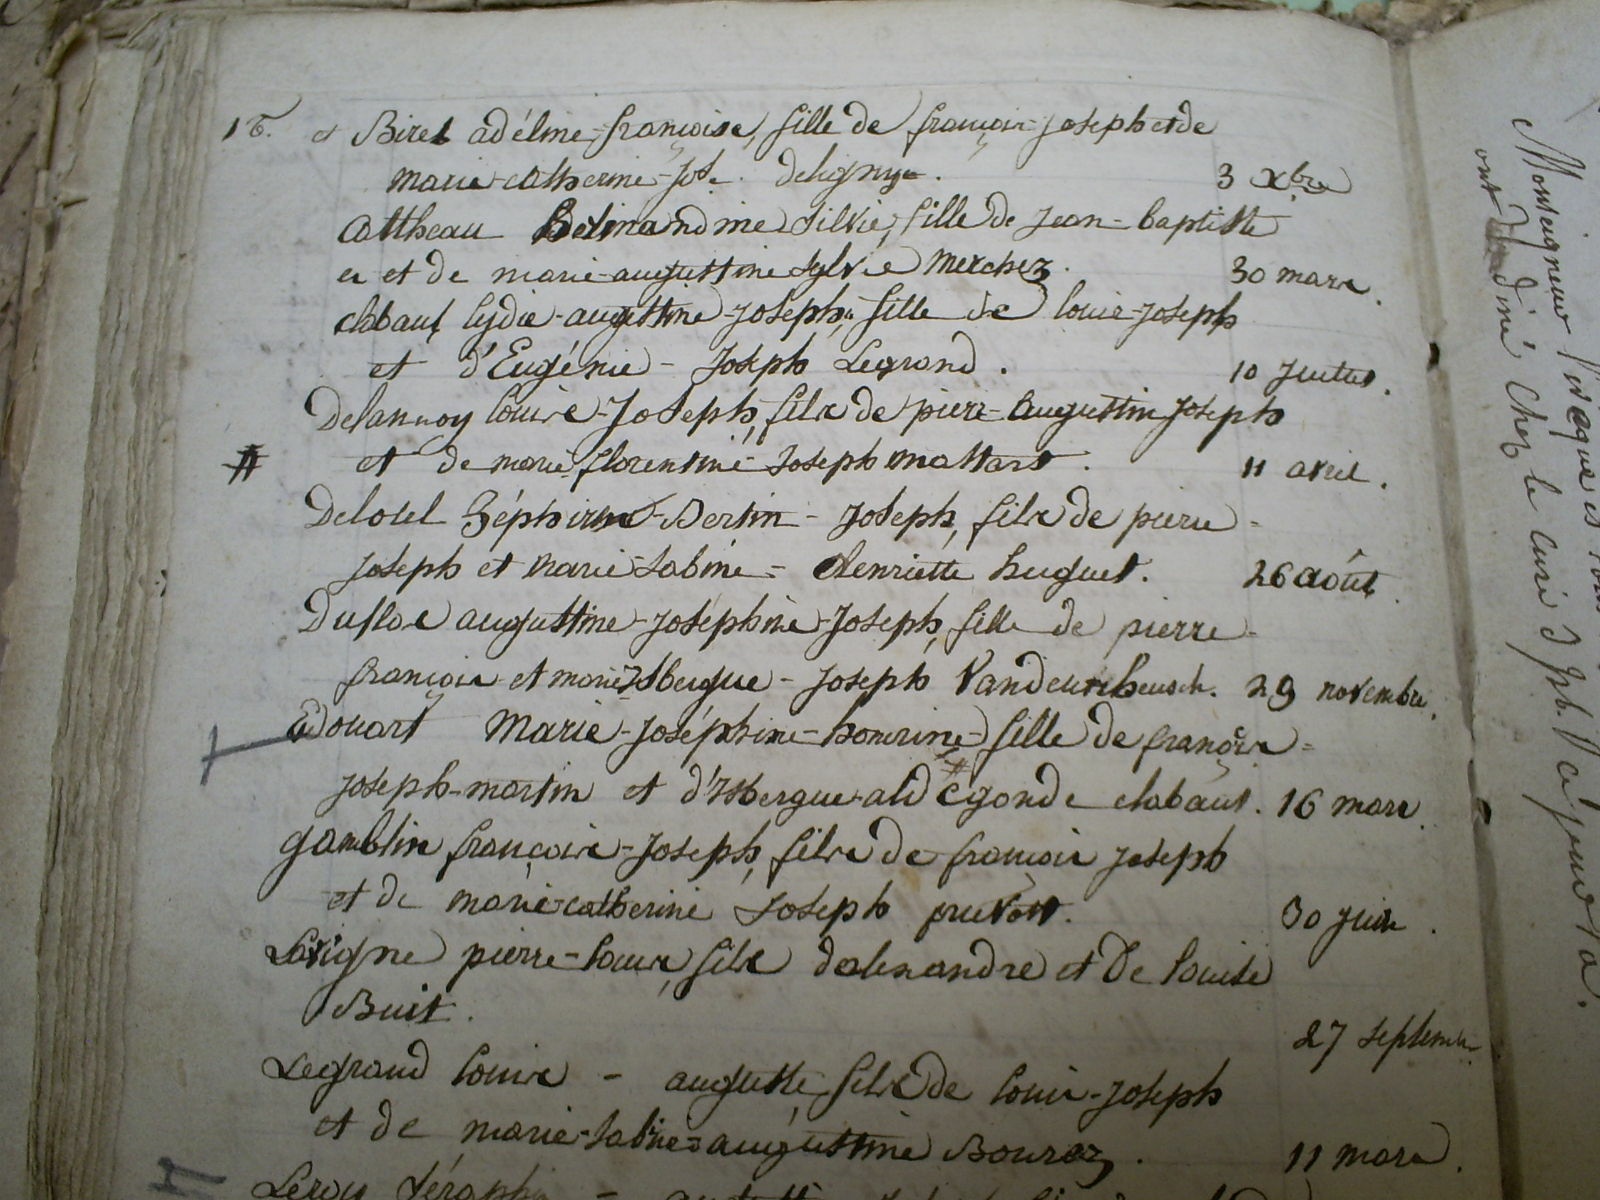 et Biret adéline-françoise, fille de françois-joseph et de
marie-catherine-Jos. deligny.
3 Xbre
Cottheau silvie, fille de jean-baptiste
et de marie-augustine sylvie Merchez.
30 mars.
Clabaut lydie-augustine-joseph, fille de louis-joseph
et d'Eugénie-Joseph Legrand.
10 Juillet.
Delannoy louis-Joseph, fils de pierre-augustin joseph
et de marie florentine-Joseph mattart.
11 avril.
Delolel Zéphirin-Bertin-joseph, fils de pierre-
joseph et marie-sabine-henriette huguet.
26 août.
Duflos augustine-joséphine-joseph, fille de pierre-
françois et marie Isbergue-joseph
29 novembre.
Edouart Marie-Joséphine-honorine fille de françois-
joseph-martin et d'Isbergue-aldegonde clabaut.
16 mars.
gamblin françois-Joseph, fils de françois joseph
et de marie-catherine Joseph prevost.
30 juin.
Lavigne pierre-louis, fils d'alexandre et de louise
Buit.
27 septembre
Legrand louis-auguste, fils de louis-joseph
et de marie-sabine-augustine Bourez.
11 mars.
Leroy
Monseigneur l'évêque
ont diné chez le curé d'